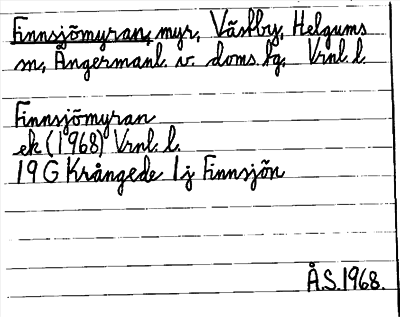 Finnsjömyran, myr, Västby, Helgums
sn, Ångermanl. v. doms. fg. Vrnl. l.
Finnsjömyran
ek (1968) Vrnl. l.
19 G Krångede 1 j Finnsjön
Å.S. 1968.